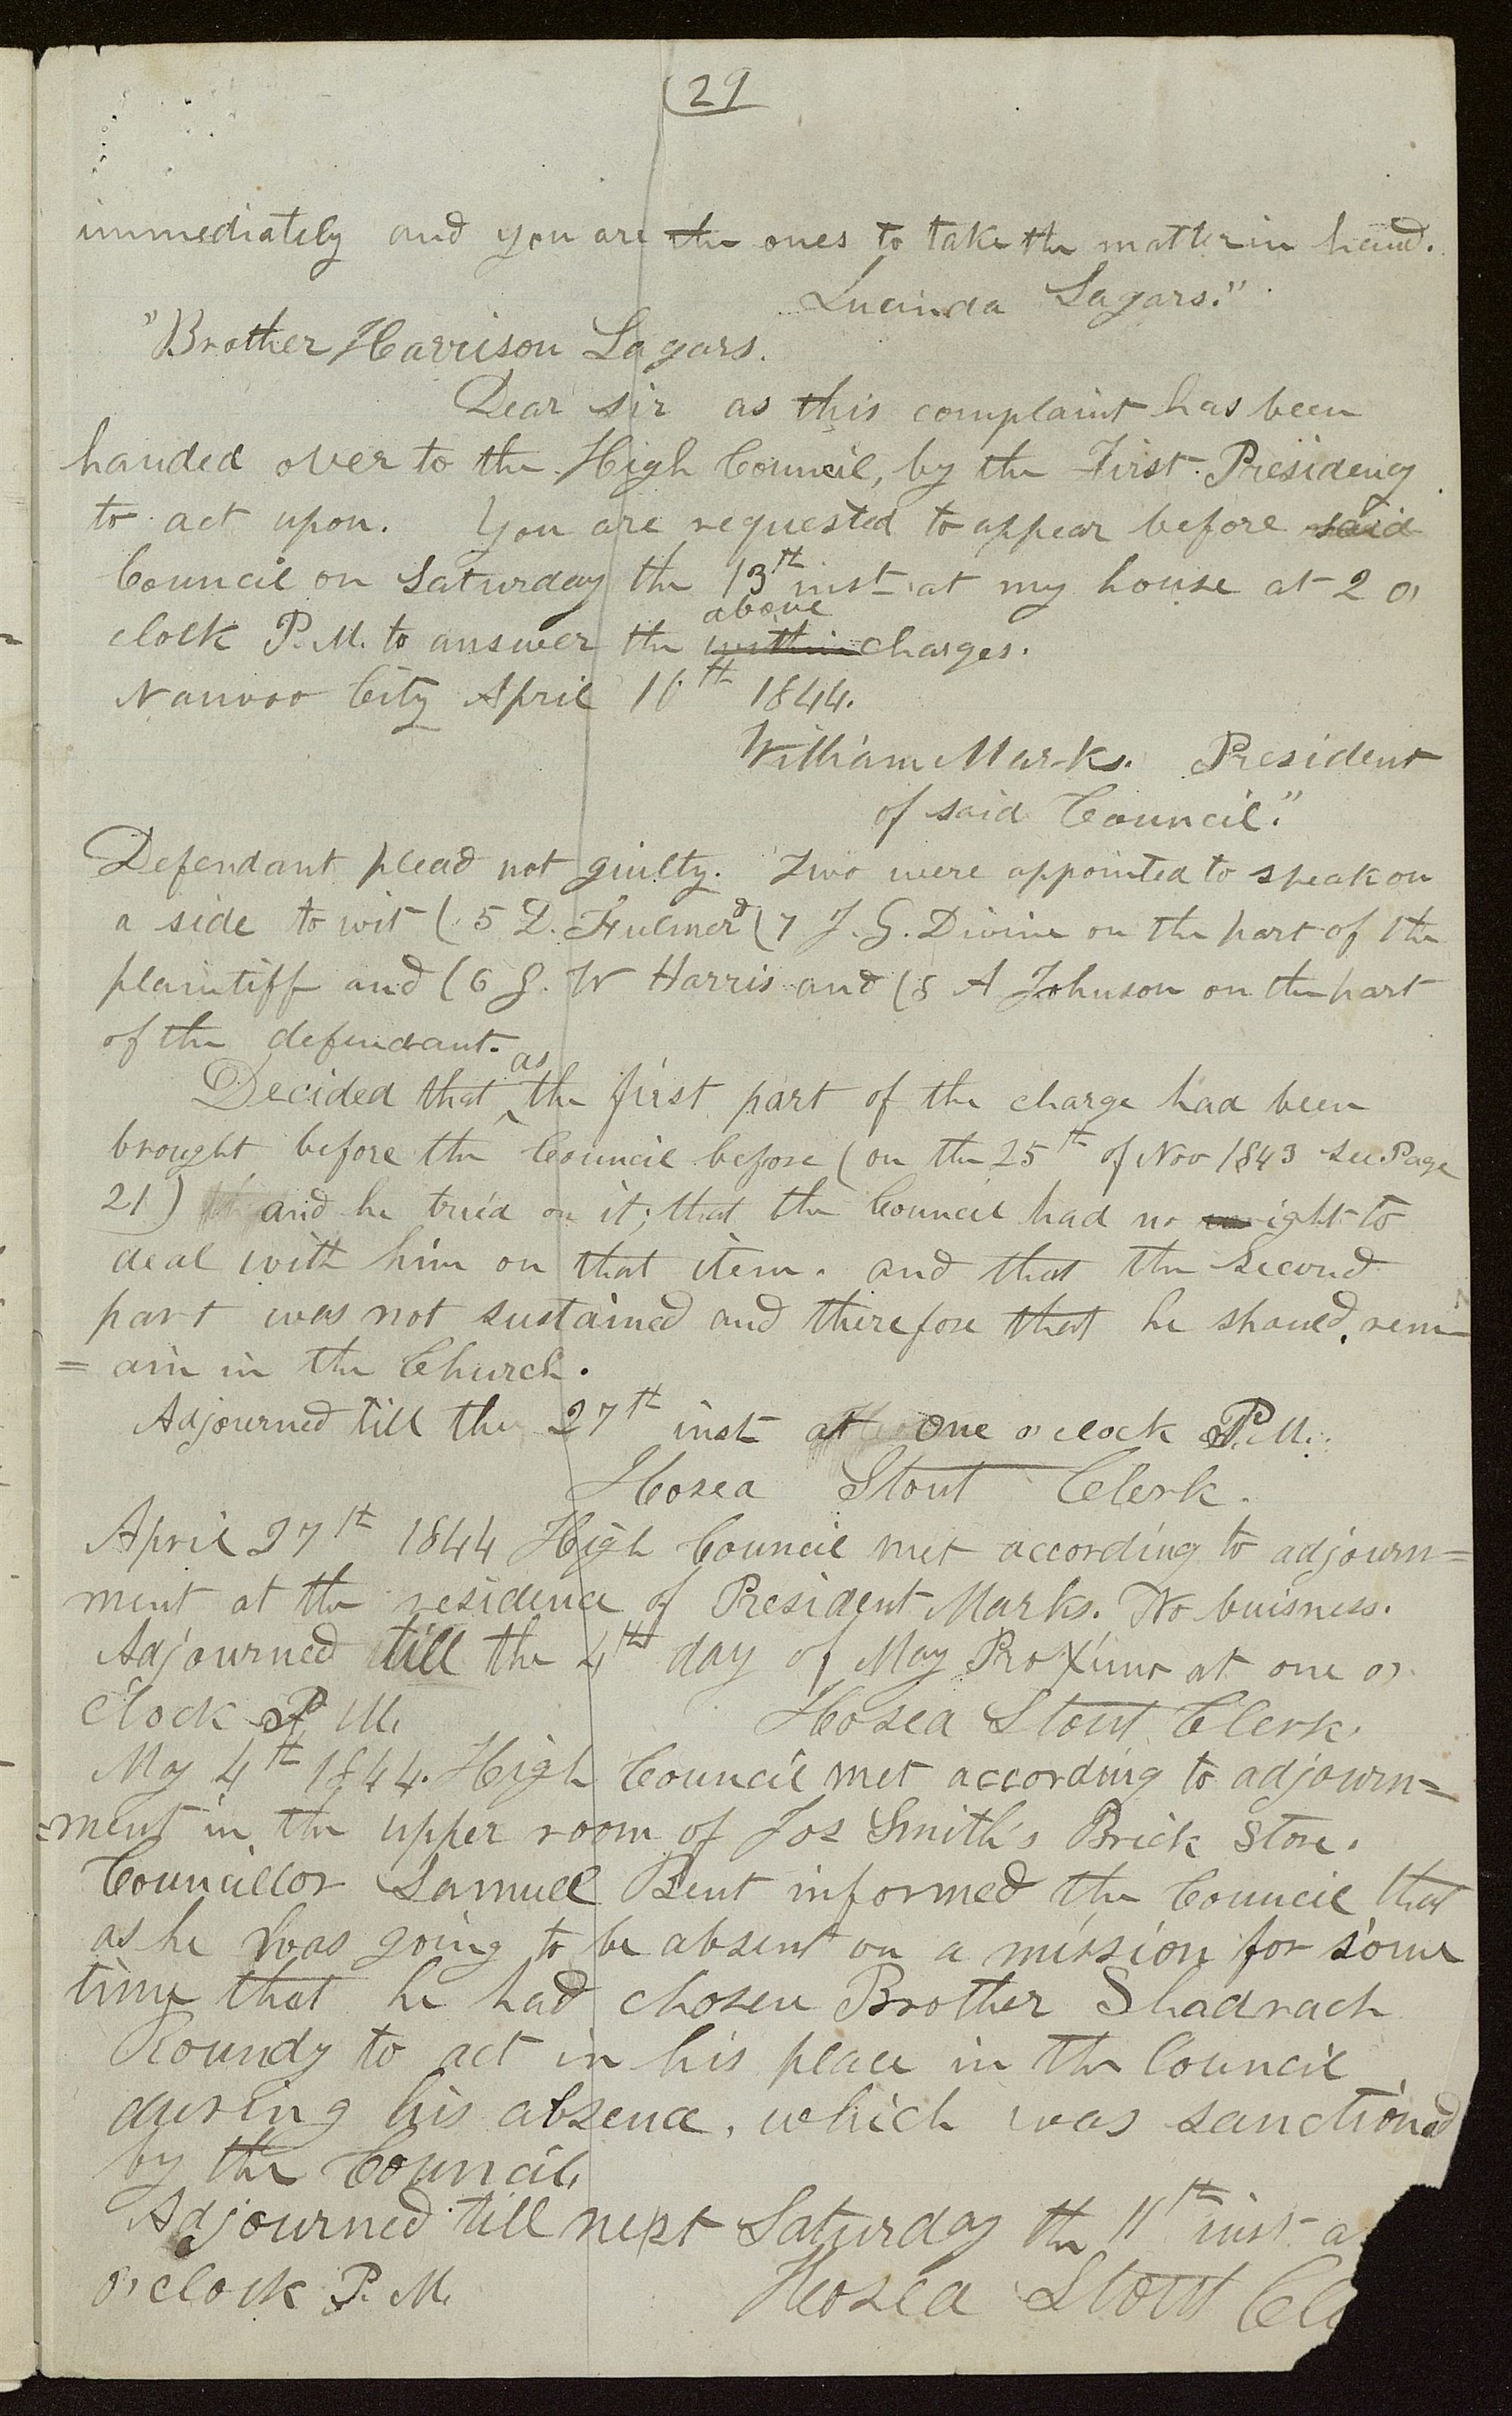 (29
immediately and you are the ones to take the matter in hand.
Lucinda Sagars."
"Brother Harrison Sagars.
Dear sir as this complaint has been
handed over to the High Council, by the First Presidency
to act upon. You are requested to appear before said
Council on Saturday the 13th inst at my house at 2 o,
above
clock P.M. to answer the within charges.
Nauvoo City April 10th 1844.
William Marks. President
of said Council."
Defendant plead not guilty. Two were appointed to speak on
a side to wit (5 D. Fulmer & (7 J. G. Divine on the part of the
plaintiff and (6 G. W Harris and (8 A Johnson on the part
of the defendant.
as
Decided that ‸ the first part of the charge had been
brought before the Council before (on the 25th of Nov 1843 see Page
21) and he tried on it; that the Council had no right to
deal with him on that item. and that the second
part was not sustained and therefore that he should rem-
=ain in the Church.
Adjourned till the 27th inst at one o,clock P.M.
Hosea Stout Clerk.
April 27th 1844 High Council met according to adjourn=
ment at the residence of President Marks. No buisness.
Adjourned till the 4th day of May Proximo at one o,
clock P M.
Hosea Stout Clerk.
May 4th 1844. High Council met according to adjourn=
=ment in the upper room of Jos Smith's Brick Store.
Councillor Samuel Bent informed the Council that
as he was going to be absent on a mission for some
time that he had chosen Brother Shadrach
Roundy to act in his place in the Council
during his absence, which was sanctioned
by the Council.
Adjourned till next Saturday the 11th inst a
o,clock P. M.
Hosea Stout Cle